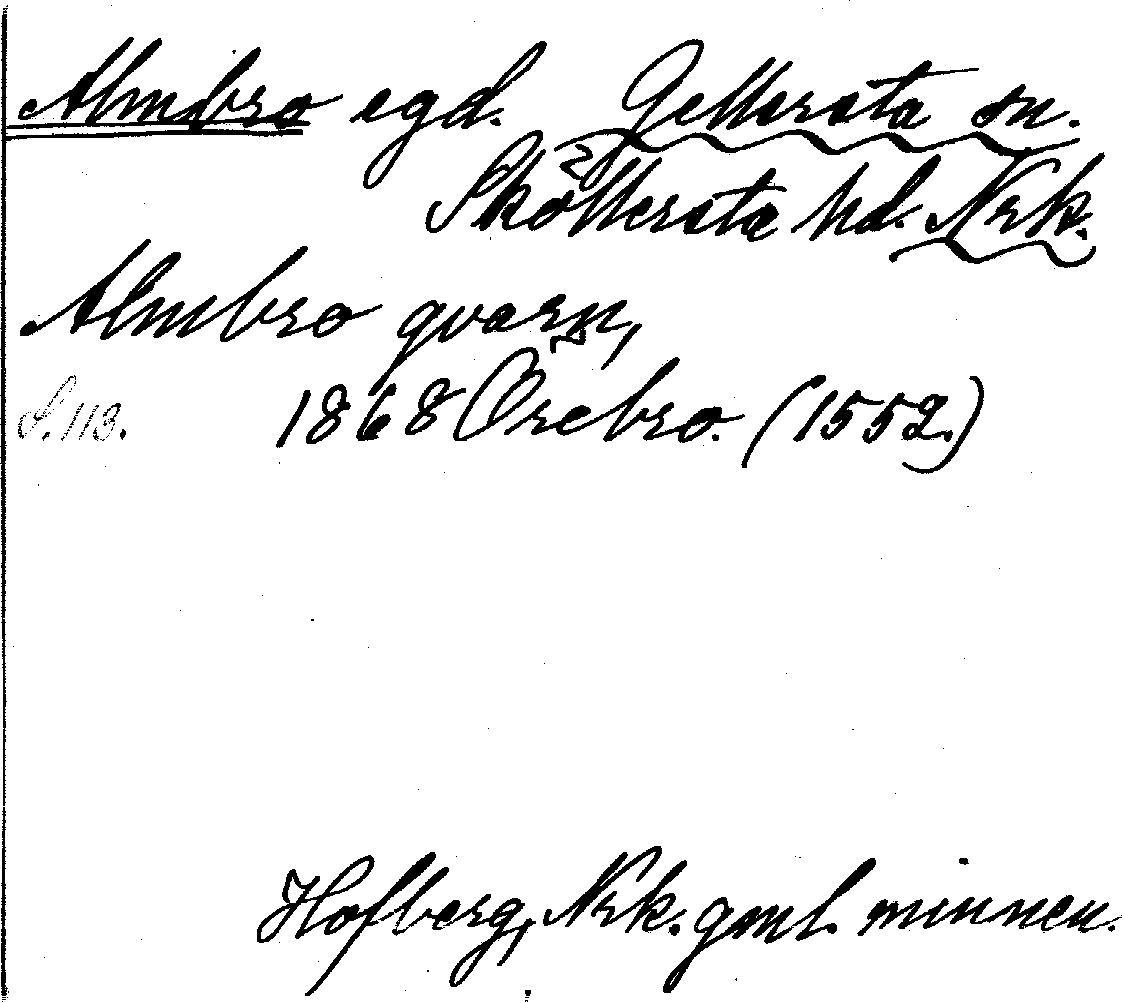 Almbro egd. Gellersta sn.
Sköllersta hd. Nrk.
Almbro qvarn,
S. 113. 1868 Örebro. (1552.)
Hofberg, Nrk. gml. minnen.